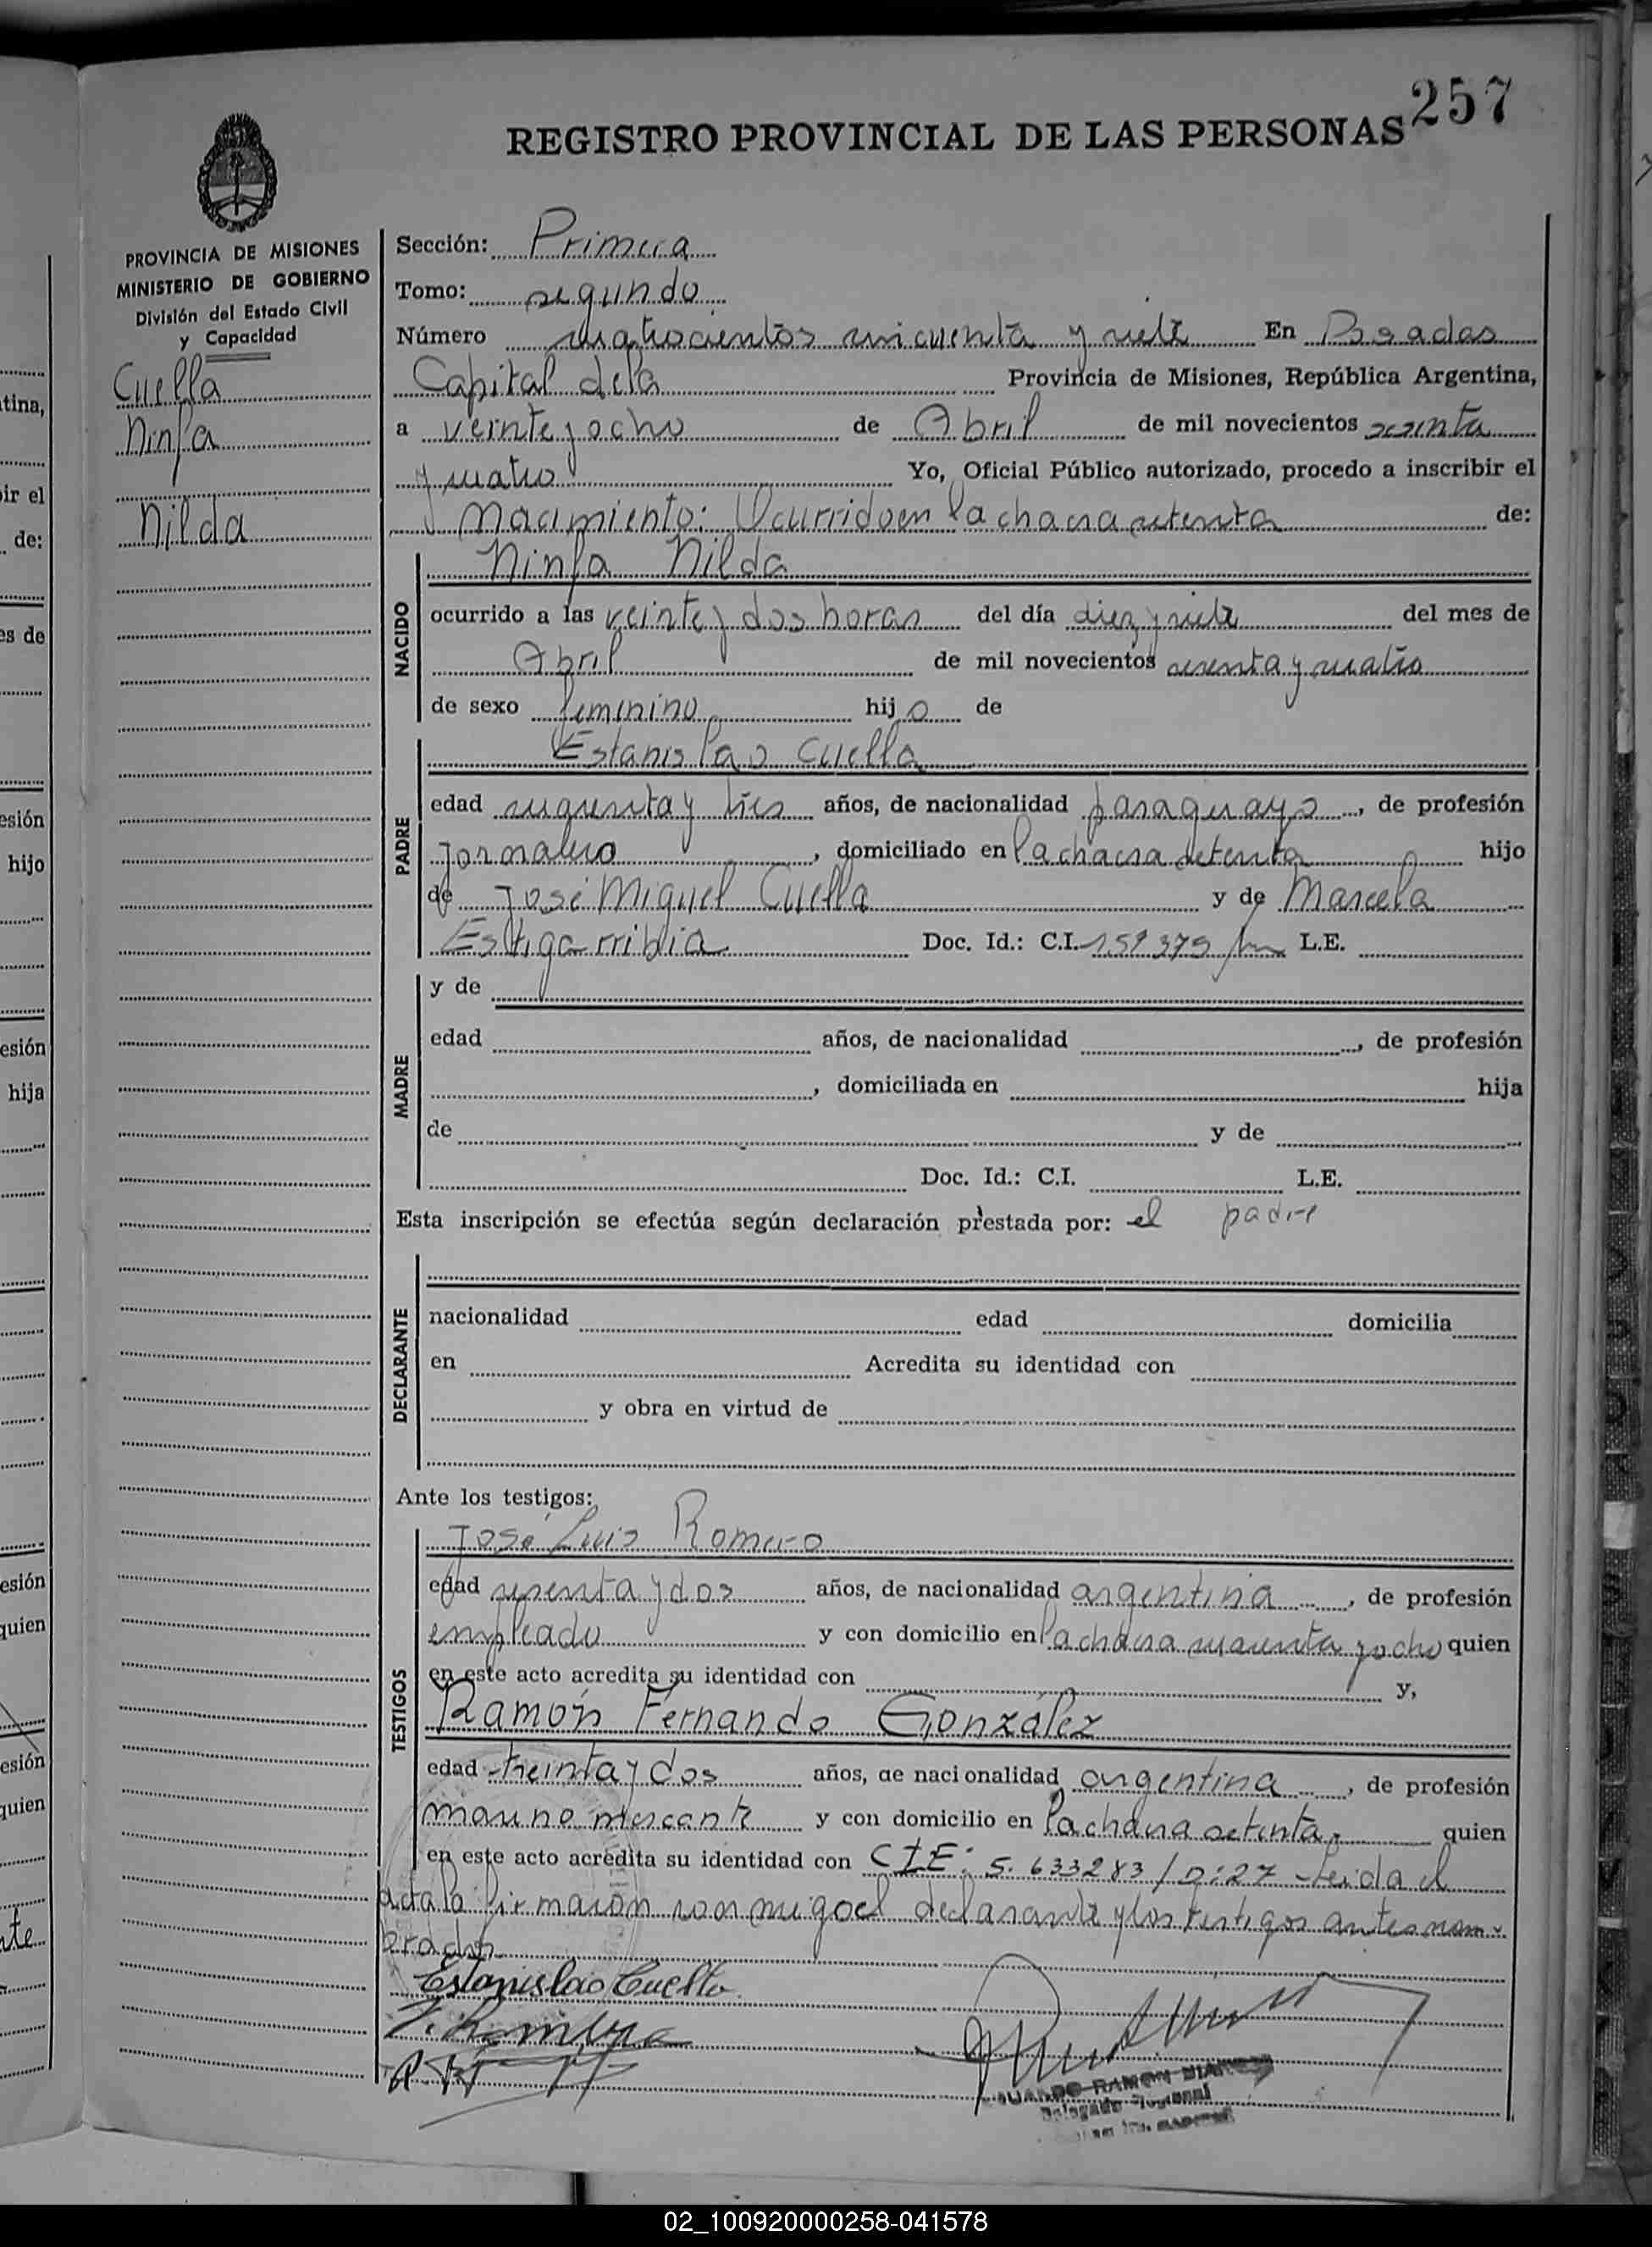 257
REGISTRO PROVINCIAL DE LAS PERSONAS
PROVINCIA DE MISIONES
MINISTERIO DE GOBIERNO
División del Estado Civil
y Capacidad
Cuella
Ninfa
Nilda
Sección: Primera
Tomo: segundo
Número cuatrocientos cincuenta y siete En Posadas
Capital de la Provincia de Misiones, República Argentina,
a veinte y ocho de Abril de mil novecientos sesenta
y cuatro Yo, Oficial Público autorizado, procedo a inscribir el
Nacimiento: Ocurrido en la chacra setenta de:
NACIDO
Ninfa Nilda
ocurrido a las veinte y dos horas del día diez y siete del mes de
Abril de mil novecientos sesenta y cuatro
de sexo femenino hij a de
PADRE
Estanislao Cuella
edad cuarenta y tres años, de nacionalidad paraguayo, de profesión
Jornalero, domiciliado en la chacra setenta hijo
de José Miguel Cuella y de Marcela
Estigarribia Doc. Id.: C.I. L.E.
MADRE
y de
edad años, de nacionalidad , de profesión
, domiciliada en hija
de y de
Doc. Id.: C.I. L.E.
Esta inscripción se efectúa según declaración prestada por: el padre
DECLARANTE
nacionalidad edad domicilia
en Acredita su identidad con
y obra en virtud de
Ante los testigos:
TESTIGOS
José Luis Romero
edad y dos años, de nacionalidad argentina, de profesión
empleado y con domicilio en la chacra cuarenta y ocho quien
en este acto acredita su identidad con y,
Ramón Fernando González
edad treinta y dos años, de nacionalidad argentina, de profesión
marino mercante y con domicilio en la chacra setenta quien
en este acto acredita su identidad con CIE: 5.633283/D:27 - Leida el
acta la firmaron conmigo el declarante y los testigos antes nom-
brados
Estanislao Cuella
RAMON
Delegado Regional
02_100920000258-041578